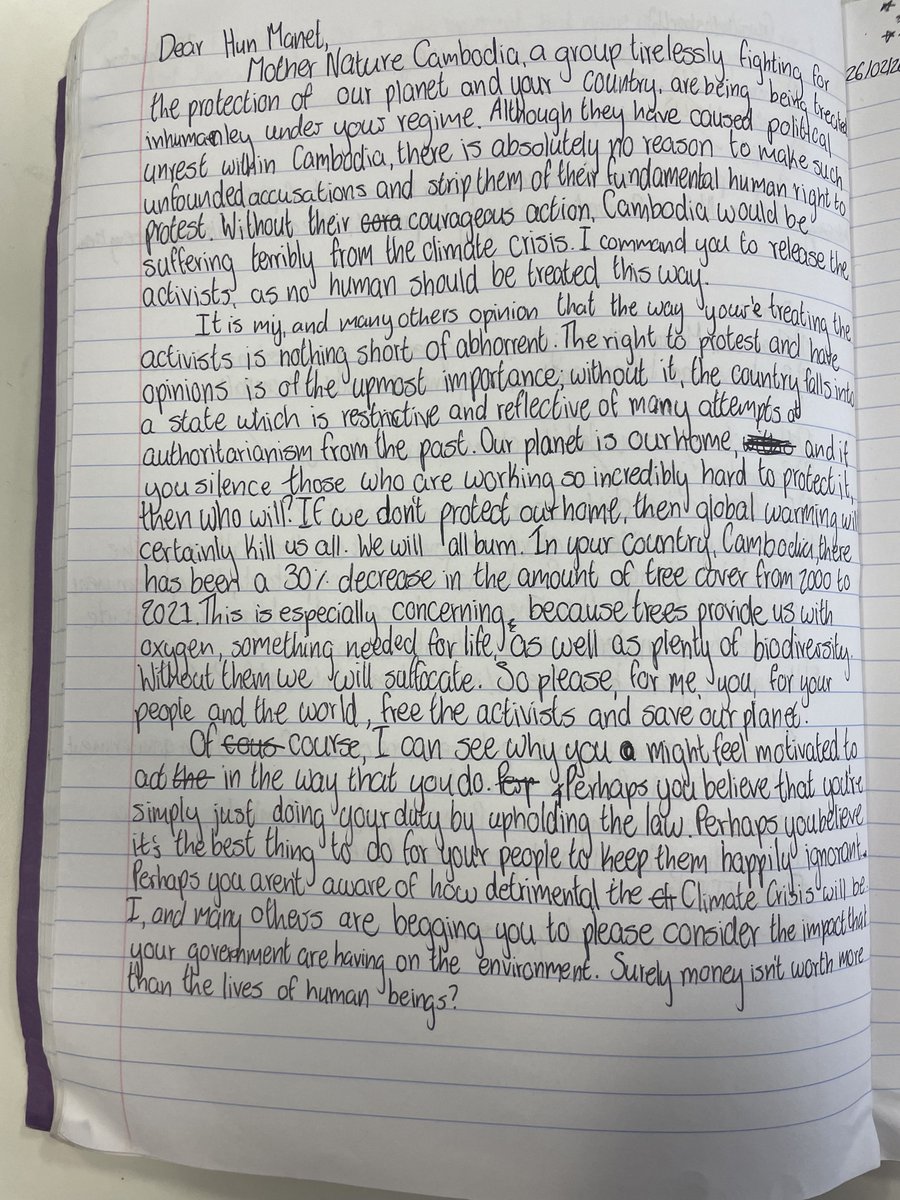 Dear Hun Manet,
Mother Nature Cambodia, a group tirelessly fighting for
the protection of our planet and your country, are being being treated
inhumanley under your regime. Although they have caused political
unrest within Cambodia, there is absolutely no reason to make such
unfounded accusations and strip them of their fundamental human right to
protest. Without their cora courageous action, Cambodia would be
suffering terribly from the climate crisis. I command you to release the
activists, as no human should be treated this way.
It is my, and many others opinion that the way your'e treating the
activists is nothing short of abhorrent. The right to protest and have
opinions is of the upmost importance; without it, the country falls into
a state which is restrictive and reflective of many attempts at
authoritarianism from the past. Our planet is our home, and if
you silence those who are working so incredibly hard to protect it,
then who will? If we don't protect our home, then global warming will
certainly kill us all. We will all burn. In your country, Cambodia, there
has been a 30% decrease in the amount of tree cover from 2000 to
2021. This is especially concerning, because trees provide us with
oxygen, something needed for life, as well as plenty of biodiversity.
Without them we will suffocate. So please, for me, you, for your
people and the world, free the activists and save our planet.
Of cous course, I can see why you might feel motivated to
act the in the way that you do. Perhaps you believe that you're
simply just doing your duty by upholding the law. Perhaps you believe
it's the best thing to do for your people to keep them happily ignorant.
Perhaps you arent aware of how detrimental the Climate Crisis will be.
I, and many others are begging you to please consider the impact that
your government are having on the environment. Surely money isn't worth more
than the lives of human beings?
26/02/20